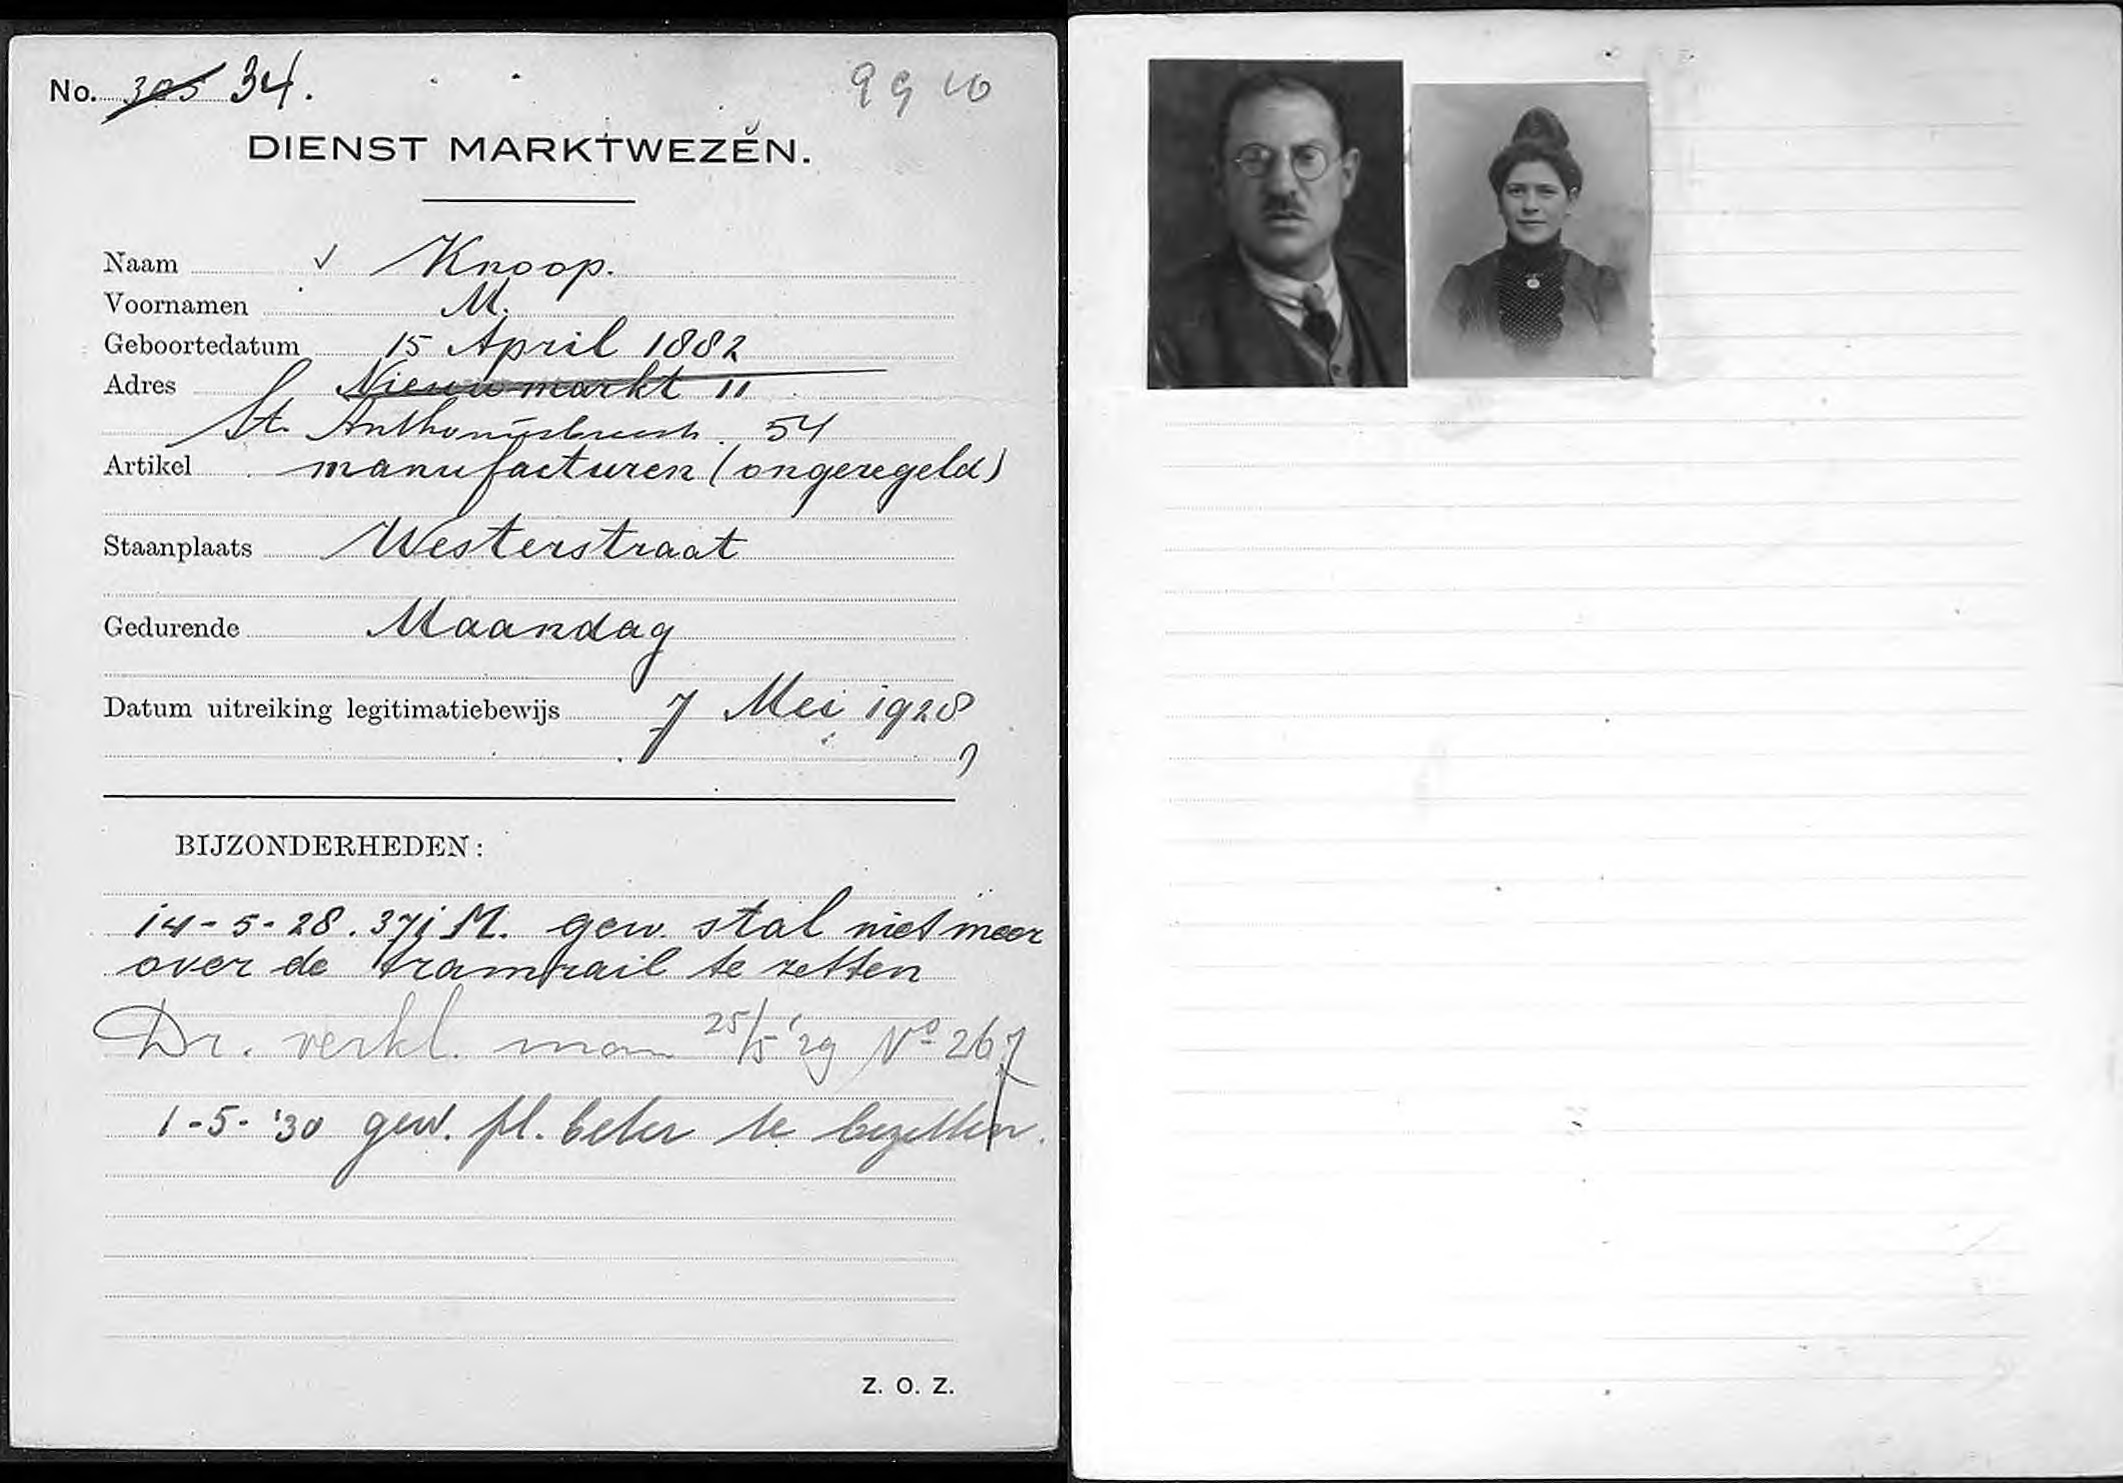 No. 305 34.
DIENST MARKTWEZEN.
Naam √ Knoop.
Voornamen M.
Geboortedatum 15 April 1882
Adres Nieuwmarkt 11
St. Anthoniesbreestr. 54
Artikel manufacturen (ongeregeld)
Staanplaats Westerstraat
Gedurende Maandag
Datum uitreiking legitimatiebewijs 7 Mei 1928
BIJZONDERHEDEN:
14-5-28. M. gew. stal niet meer
over de tramrail te zetten
Dr. verkl. man 25/5 '29 No 267
1-5-'30 gew. pl. beter te bezetten.
Z. O. Z.